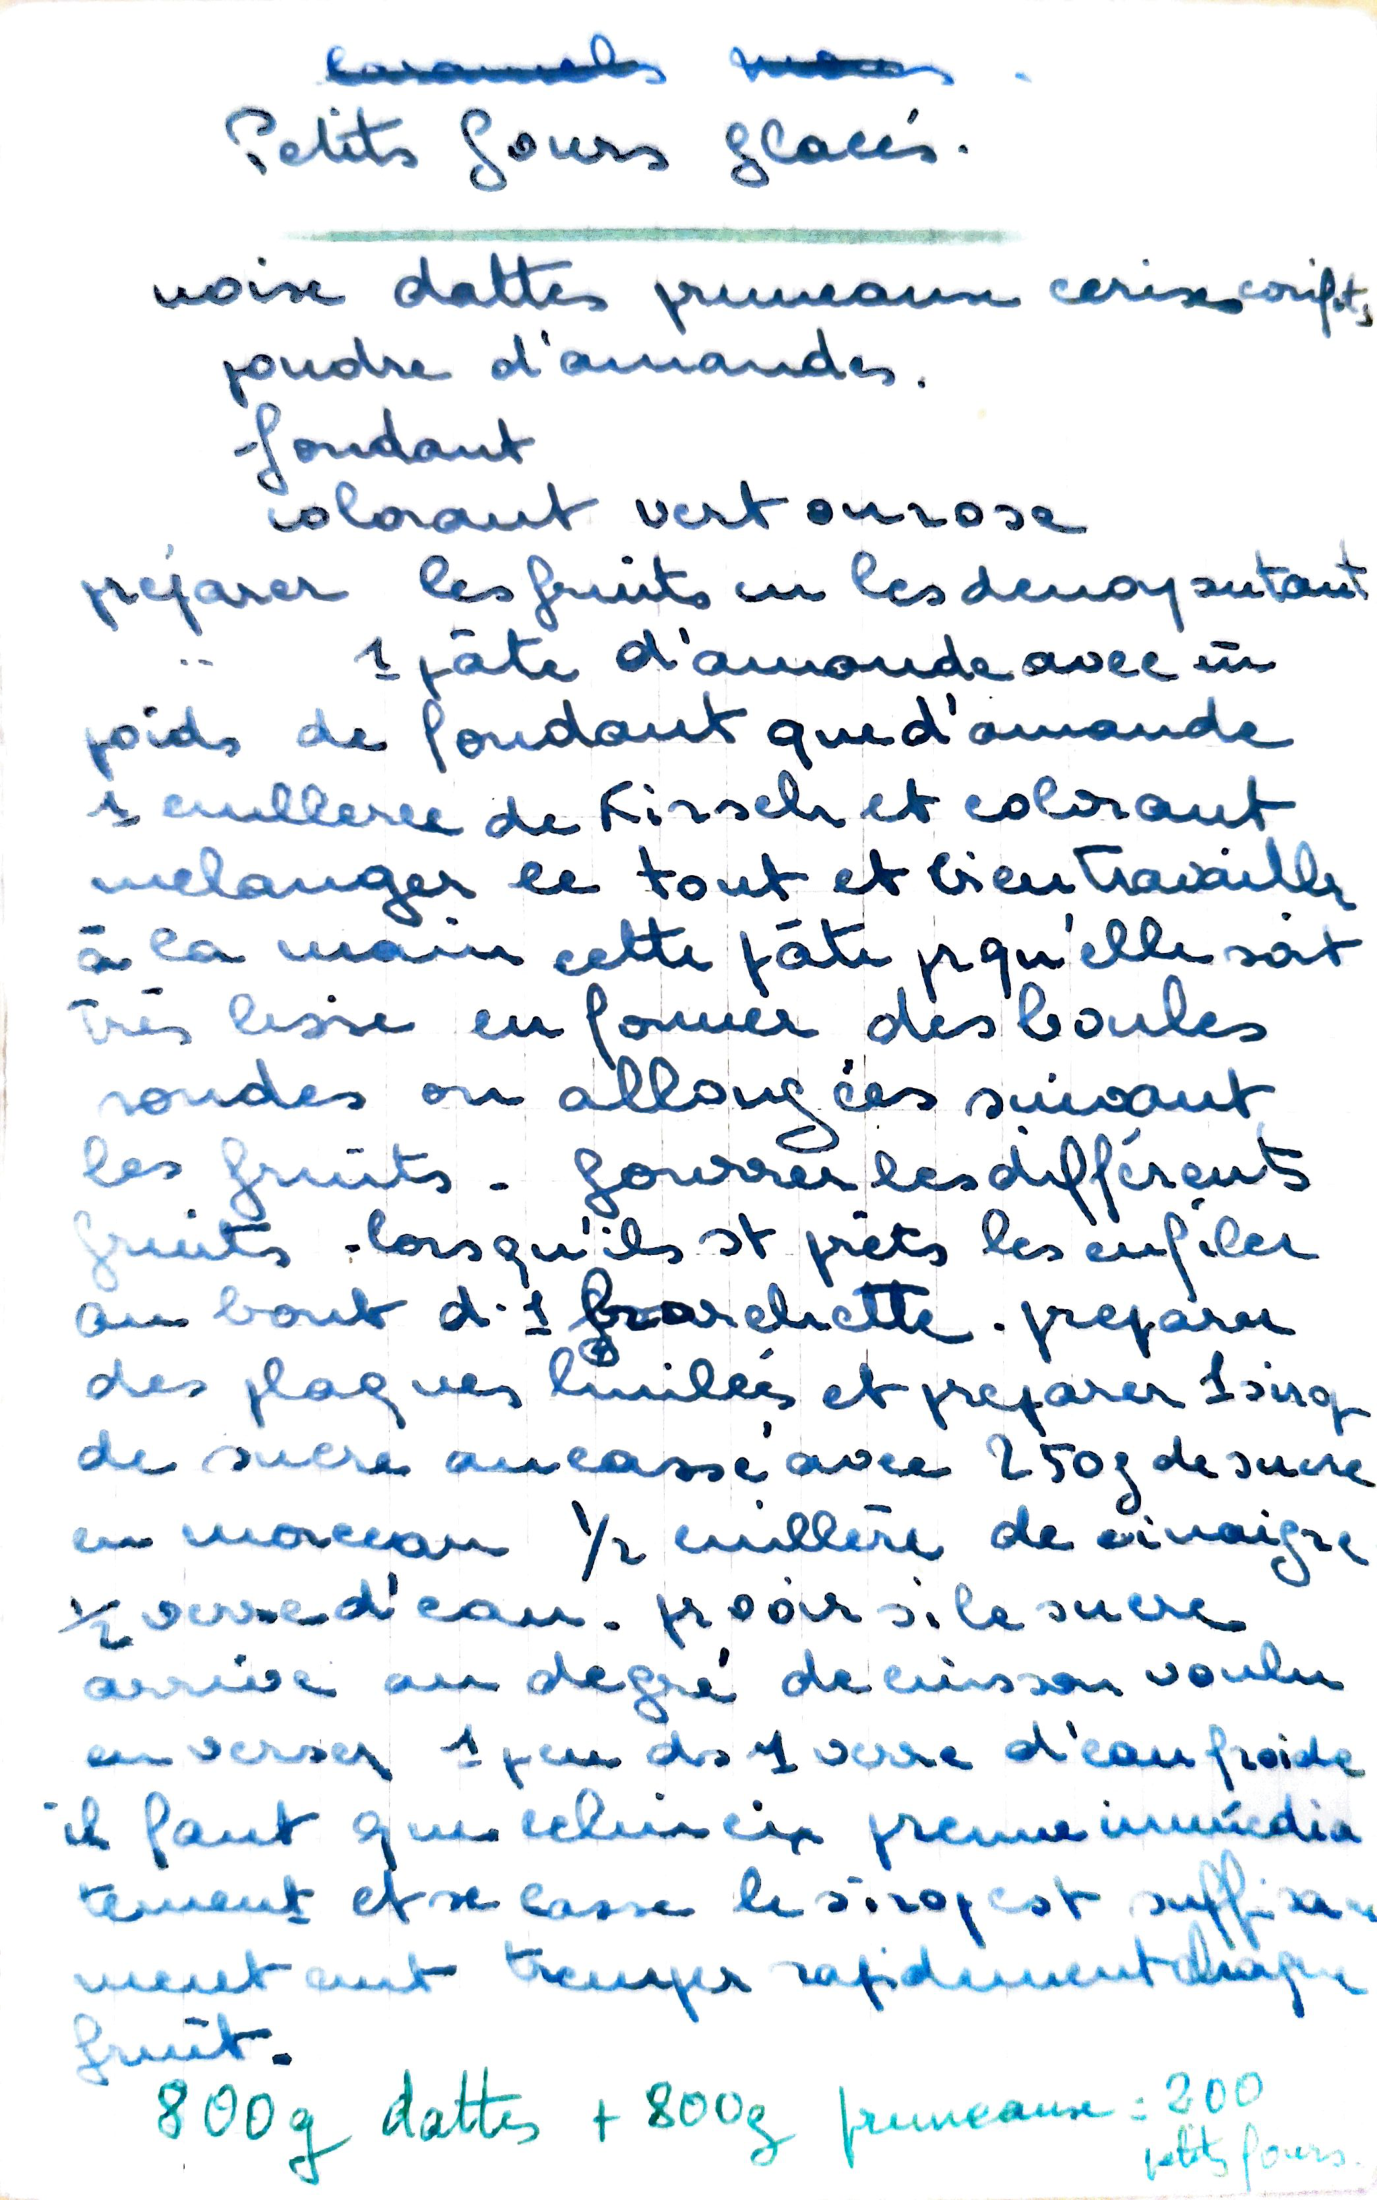 caramels mous.
Petits fours glacés.
noix dattes pruneaux cerises confits
poudre d'amandes.
fondant
colorant vert ou rose
préparer les fruits en les denoyautant
" 1 pâte d'amande avec m̄
poids de fondant que d'amande
1 cuilleree de Kirsch et colorant
melanger le tout et bien travailler
à la main cette pâte pr qu'elle soit
très lisse en former des boules
rondes ou allongées suivant
les fruits - fourrer les différents
fruits - lorsqu'ils st prêts les enfiler
au bout d'1 brochette. preparer
des plaques huilées et preparer 1 sirop
de sucre au cassé avec 250g de sucre
en morceau 1/2 cuillère de vinaigre
1/2 verre d'eau. pr voir si le sucre
arrive au degré de cuisson voulu
en verser 1 peu ds 1 verre d'eau froide
il faut que celui ci prenne immédia
tement et se casse le sirop est suffisam
ment cuit tremper rapidement chaque
fruit.
800g dattes + 800g pruneaux = 200
petits fours.